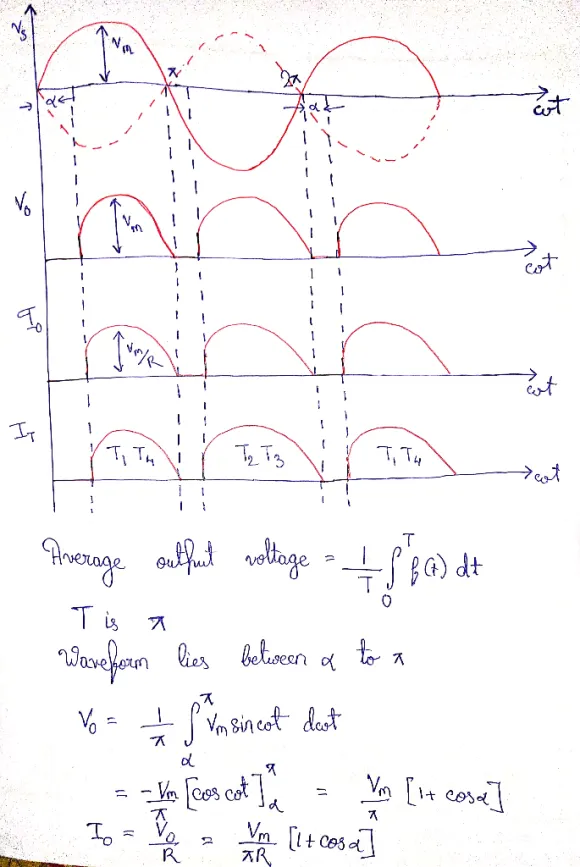 Vs
Vm
π
2π
α
α
ωt
Vo
Vm
ωt
Io
Vm/R
ωt
IT
T1 T4 T2 T3 T1 T4
ωt
Average output voltage = 1/T ∫₀ᵀ f(t) dt
T is π
Waveform lies between α to π
Vo = 1/π ∫_α^π Vm sin ωt dωt
= -Vm/π [cos ωt]_α^π = Vm/π [1+ cosα]
Io = Vo/R = Vm/πR [1+cosα]